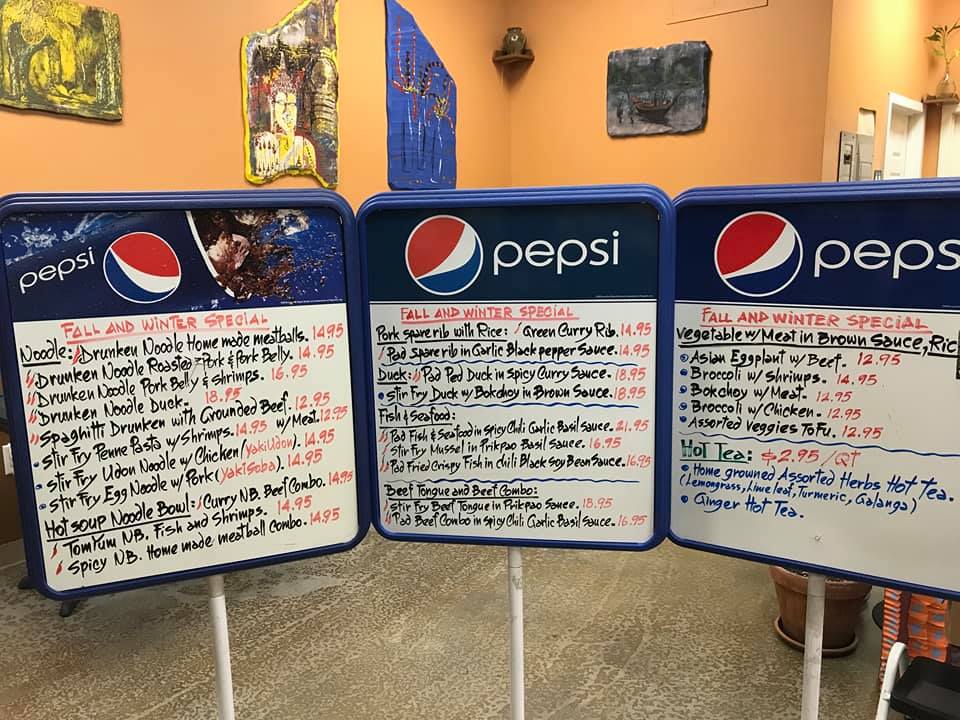 pepsi
FALL AND WINTER SPECIAL
Noodle: Drunken Noodle Home made meatballs. 14.95
Drunken Noodle Roasted Pork & Pork Belly. 14.95
Drunken Noodle Pork Belly & Shrimps. 16.95
Drunken Noodle Duck. 18.95
Spaghitti Drunken with Grounded Beef. 12.95
Stir Fry Penne Pasta w/Shrimps. 14.95 w/Meat. 12.95
Stir Fry Udon Noodle w/Chicken (Yakiudon). 14.95
Stir Fry Egg Noodle w/Pork (Yakisoba). 14.95
Hot soup Noodle Bowl: Curry NB. Beef Combo. 14.95
Tomyum NB. Fish and Shrimps. 14.95
Spicy NB. Home made meatball Combo. 14.95
pepsi
FALL AND WINTER SPECIAL
Pork sparerib with Rice: Green Curry Rib. 14.95
Pad sparerib in Garlic Black pepper Sauce. 14.95
Duck: Pad Ped Duck in Spicy Curry Sauce. 18.95
Stir Fry Duck w/Bokchoy in Brown Sauce. 18.95
Fish & Seafood:
Pad Fish & Seafood in spicy Chili Garlic Basil Sauce. 21.95
Stir Fry Mussel in Prikpao Basil Sauce. 16.95
Pad Fried Crispy Fish in chili Black Soy Bean Sauce. 16.95
Beef Tongue and Beef Combo:
Stir Fry Beef Tongue in Prikpao Sauce. 18.95
Pad Beef Combo in spicy Chili Garlic Basil Sauce. 16.95
peps
FALL AND WINTER SPECIAL
Vegetable w/Meat in Brown Sauce, Ric
Asian Eggplant w/Beef. 12.95
Broccoli w/Shrimps. 14.95
Bokchoy w/Meat. 12.95
Broccoli w/Chicken. 12.95
Assorted Veggies ToFu. 12.95
Hot Tea: $2.95/QT
Home growned Assorted Herbs Hot Tea.
(Lemongrass, Lime leaf, Turmeric, Galanga)
Ginger Hot Tea.